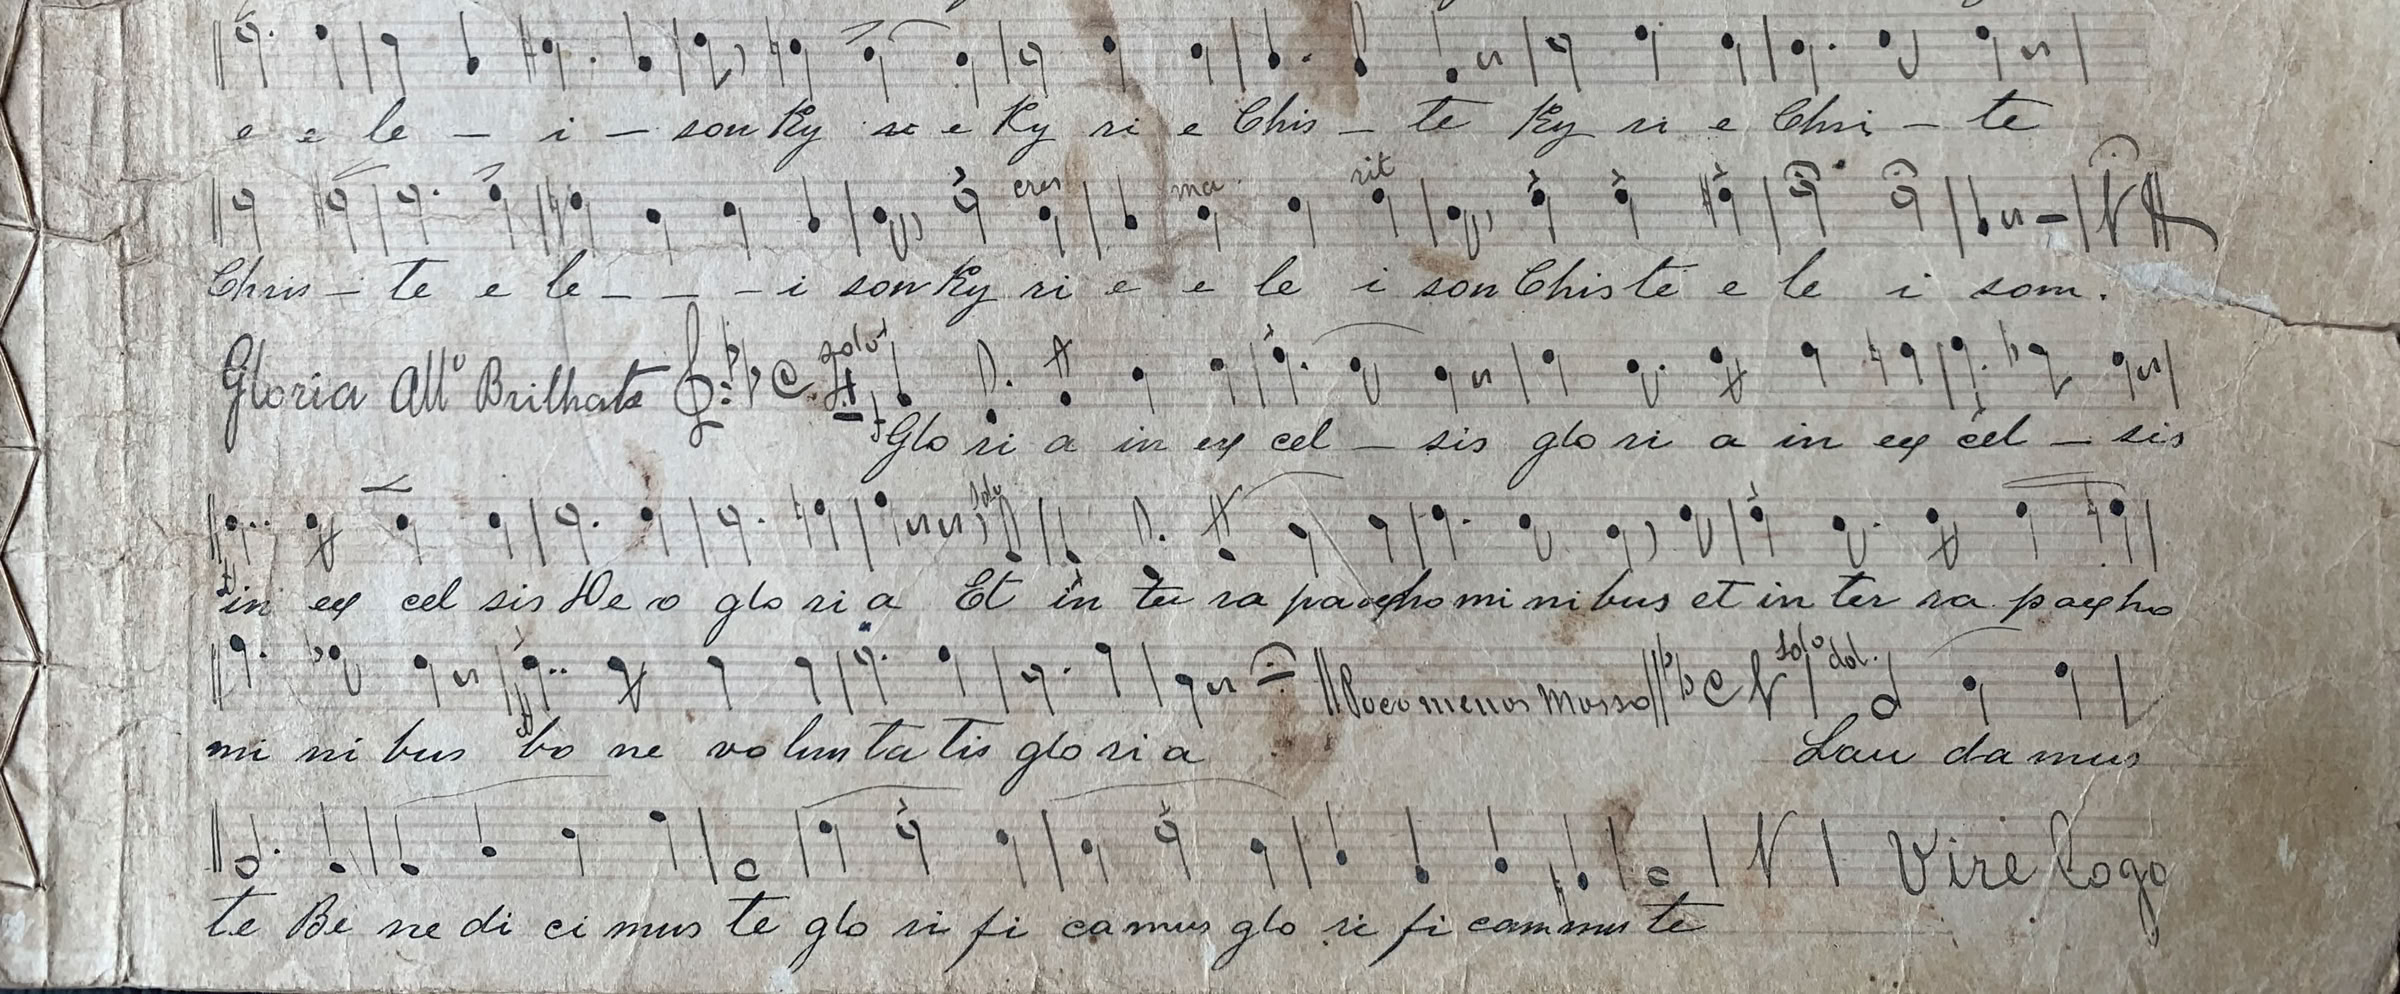 e e le - i - son Ky ri e Ky ri e Chis - te Ky ri e Chri - te
cres ma rit
Chris - te e le - - - i son Ky ri e e le i son Chiste e le i som.
Gloria All° Brilhate solo
Glo ri a in ex cel - sis glo ri a in ex cel - sis
Solo
in ex cel sis De o glo ri a Et in te ra pax ho mi ni bus et in ter ra pax ho
Poco menos Mosso solo dol.
mi ni bus bo ne vo lun ta tis glo ri a Lau da mus
Vire logo
te Be ne di ci mus te glo ri fi ca mus glo ri fi cammus te